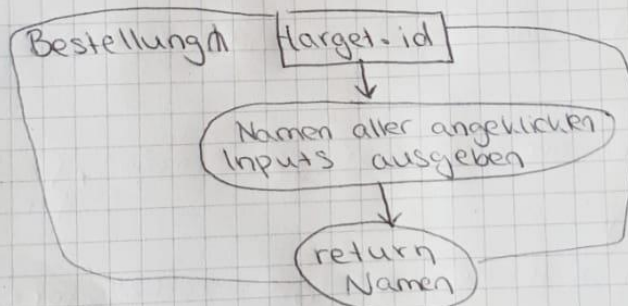 Bestellung target.id
Namen aller angeklickten
Inputs ausgeben
return
Namen